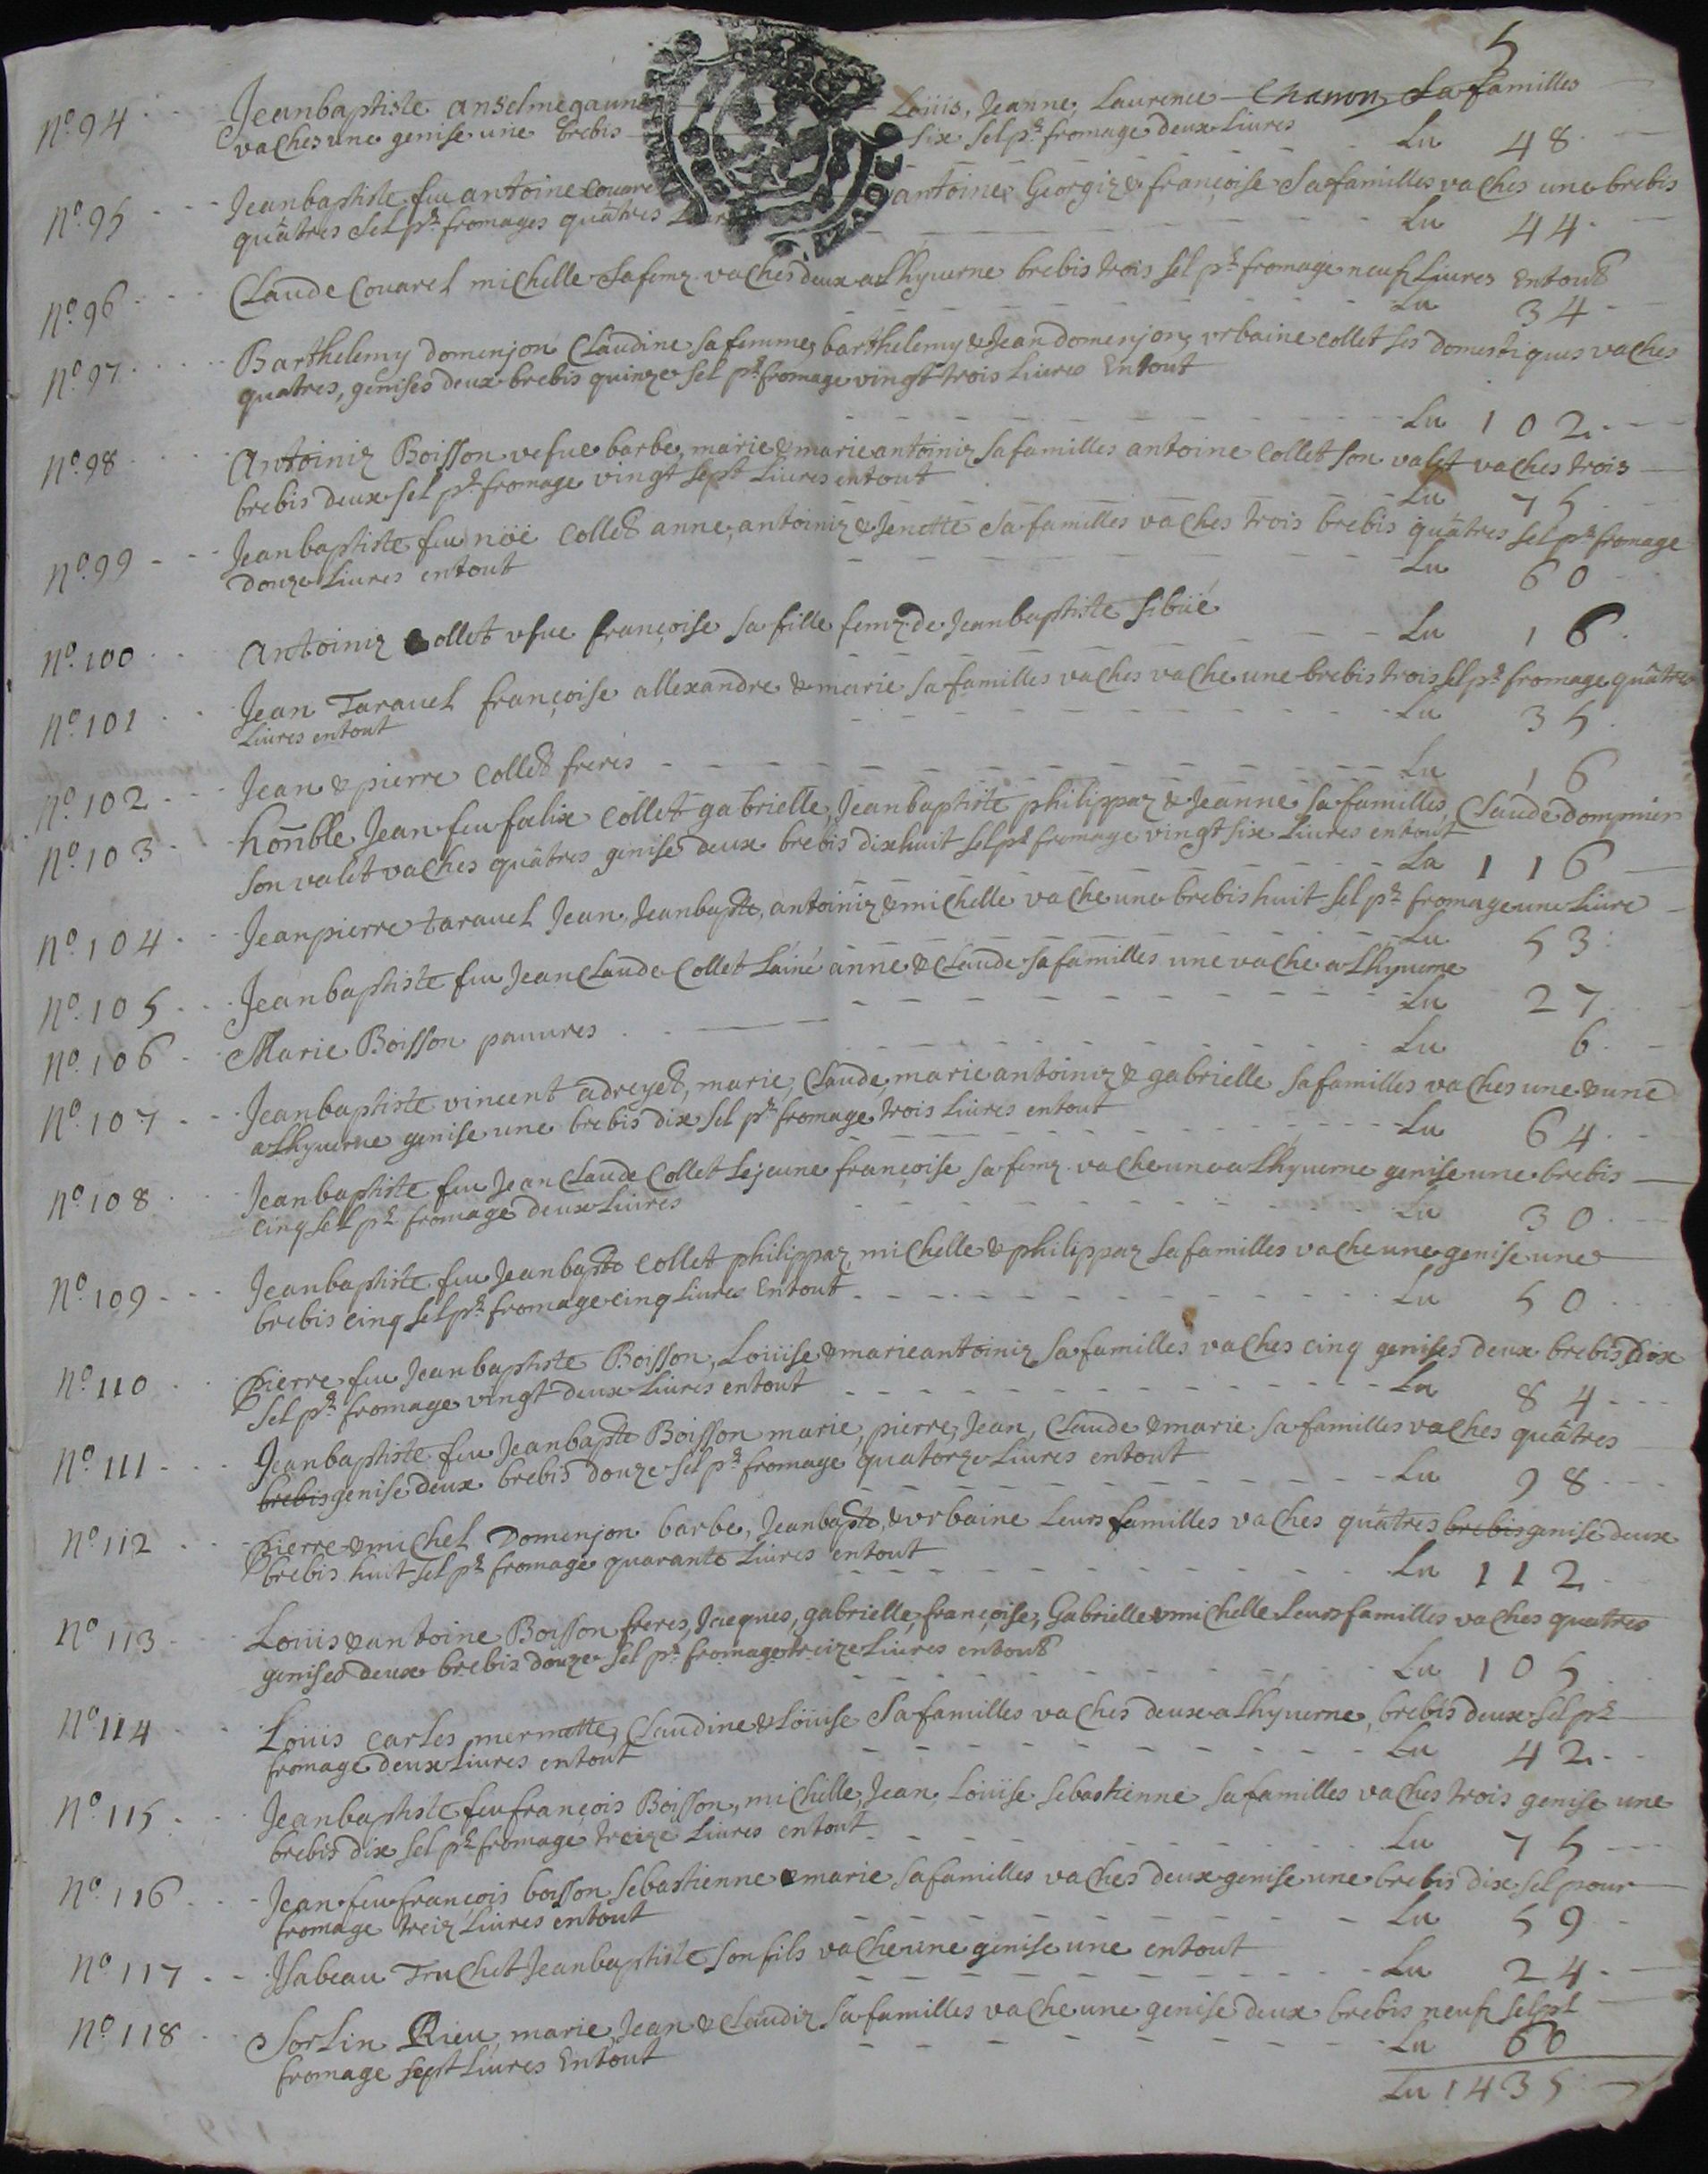 5
n.º 94 Jeanbaptiste anselme gaune Loüis, Jeanne, Laurence Sa familles
vaches une genise une brebis six sel p.r fromage deux Liures
Lu 48
n.º 95 Jeanbaptiste feu antoine Couarel antoine Georgiz & françoise Sa familles vaches une brebis
quâtres Sel p.r fromages quâtres
Lu 44
n.º 96 Claude Couarel michelle Sa femz vaches deux a Lhyuerne brebis trois sel p.r fromage neuf Liures Entout
Lu 34
n.º 97 Barthelemy domenjon Claudine sa femme, barthelemy & Jean domenjon, vrbaine collet ses domestiques vaches
quatres, genises deux brebis quinze sel p.r fromage vingt trois Liures Entout
Lu 102
n.º 98 Antoiniz Boisson vefue barbe, marie & marie antoiniz Sa familles antoine Collet Son valet vaches trois
brebis deux sel p.r fromage vingt sept Liures entout
Lu 75
n.º 99 Jeanbaptiste feu nöë Collet anne, antoiniz & Jenette Sa familles vaches trois brebis quâtres sel p.r fromage
Douze Liures entout
Lu 60
n.º 100 Antoiniz Collet vfue françoise sa fille femz de Jeanbaptiste Sibüé
Lu 16
n.º 101 Jean Tarauel françoise allexandre & marie sa familles vaches vache une brebis trois sel p.r fromage quâtres
Liures entout
Lu 35
n.º 102 Jean & pierre Collet freres
Lu 16
n.º 103 hoñble Jean feu fœlix Collet gabrielle, Jeanbaptiste philippaz & Jeanne sa familles, Claude dompnier
son valet vaches quâtres genise deux brebis dixhuit sel p.r fromage vingt six Liures entout
La 116
n.º 104 Jeanpierre tarauel Jean, Jeanbapte, antoiniz & michelle vache une brebis huit sel p.r fromage une Liure
Lu 53
n.º 105 Jeanbaptiste feu Jean Claude Collet Lainé anne & Claude sa familles une vache a Lhyuerne
Lu 27
n.º 106 Marie Boisson pauures
Lu 6
n.º 107 Jeanbaptiste vincent adreyet, marie, Claude, marie antoiniz & gabrielle sa familles vaches une & une
a Lhyuerne genise une brebis dix sel p.r fromage trois Liures entout
Lu 64
n.º 108 Jeanbaptiste feu Jean Claude Collet Lejeune françoise sa femz vache une a Lhyuerne genise une brebis
cinq sel p.r fromage deux Liures
Lu 30
n.º 109 Jeanbaptiste feu Jeanbapte Collet philippaz, michelle & philippaz sa familles vache une genise une
brebis cinq sel p.r fromage cinq Liures Entout
Lu 50
n.º 110 Pierre feu Jeanbaptiste Boisson, Loüise & marieantoiniz sa familles vaches cinq genises deux brebis dix
Sel p.r fromage vingt deux Liures entout
Lu 84
n.º 111 Jeanbaptiste feu Jeanbapte Boisson marie, pierre, Jean, Claude & marie sa familles vaches quâtres
brebis genise deux brebis douze sel p.r fromage quatorze Liures entout
Lu 98
n.º 112 Pierre & michel Domenjon barbe, Jeanbapte, & vrbaine Leurs familles vaches quâtres brebis genise deux
brebis huit sel p.r fromage quarante Liures entout
Lu 112
n.º 113 Loüis & antoine Boisson freres, Jacques, gabrielle, françoise, Gabrielle & michelle Leurs familles vaches quatres
genises deux brebis douze sel p.r fromage treize Liures entout
Lu 105
n.º 114 Loüis carles mermette, Claudine & Loüise Sa familles vaches deux a Lhyuerne, brebis deux sel p.r
fromage deux Liures entout
Lu 42
n.º 115 Jeanbaptiste feu françois Boisson, michelle, Jean, Loüise sebastienne sa familles vaches trois genise une
brebis dix sel p.r fromage treize Liures entout
Lu 75
n.º 116 Jean feu françois boisson sebastienne & marie sa familles vaches deux genise une brebis dix sel pour
fromage treiz Liures entout
Lu 59
n.º 117 Isabeau Truchet Jeanbaptiste son fils vache une genise une entout
Lu 24
n.º 118 Sorlin Rieu, marie, Jean & Claudiz Sa familles vache une genise deux brebis neuf sel p.r
fromage sept Liures Entout
Lu 60
Lu 1435